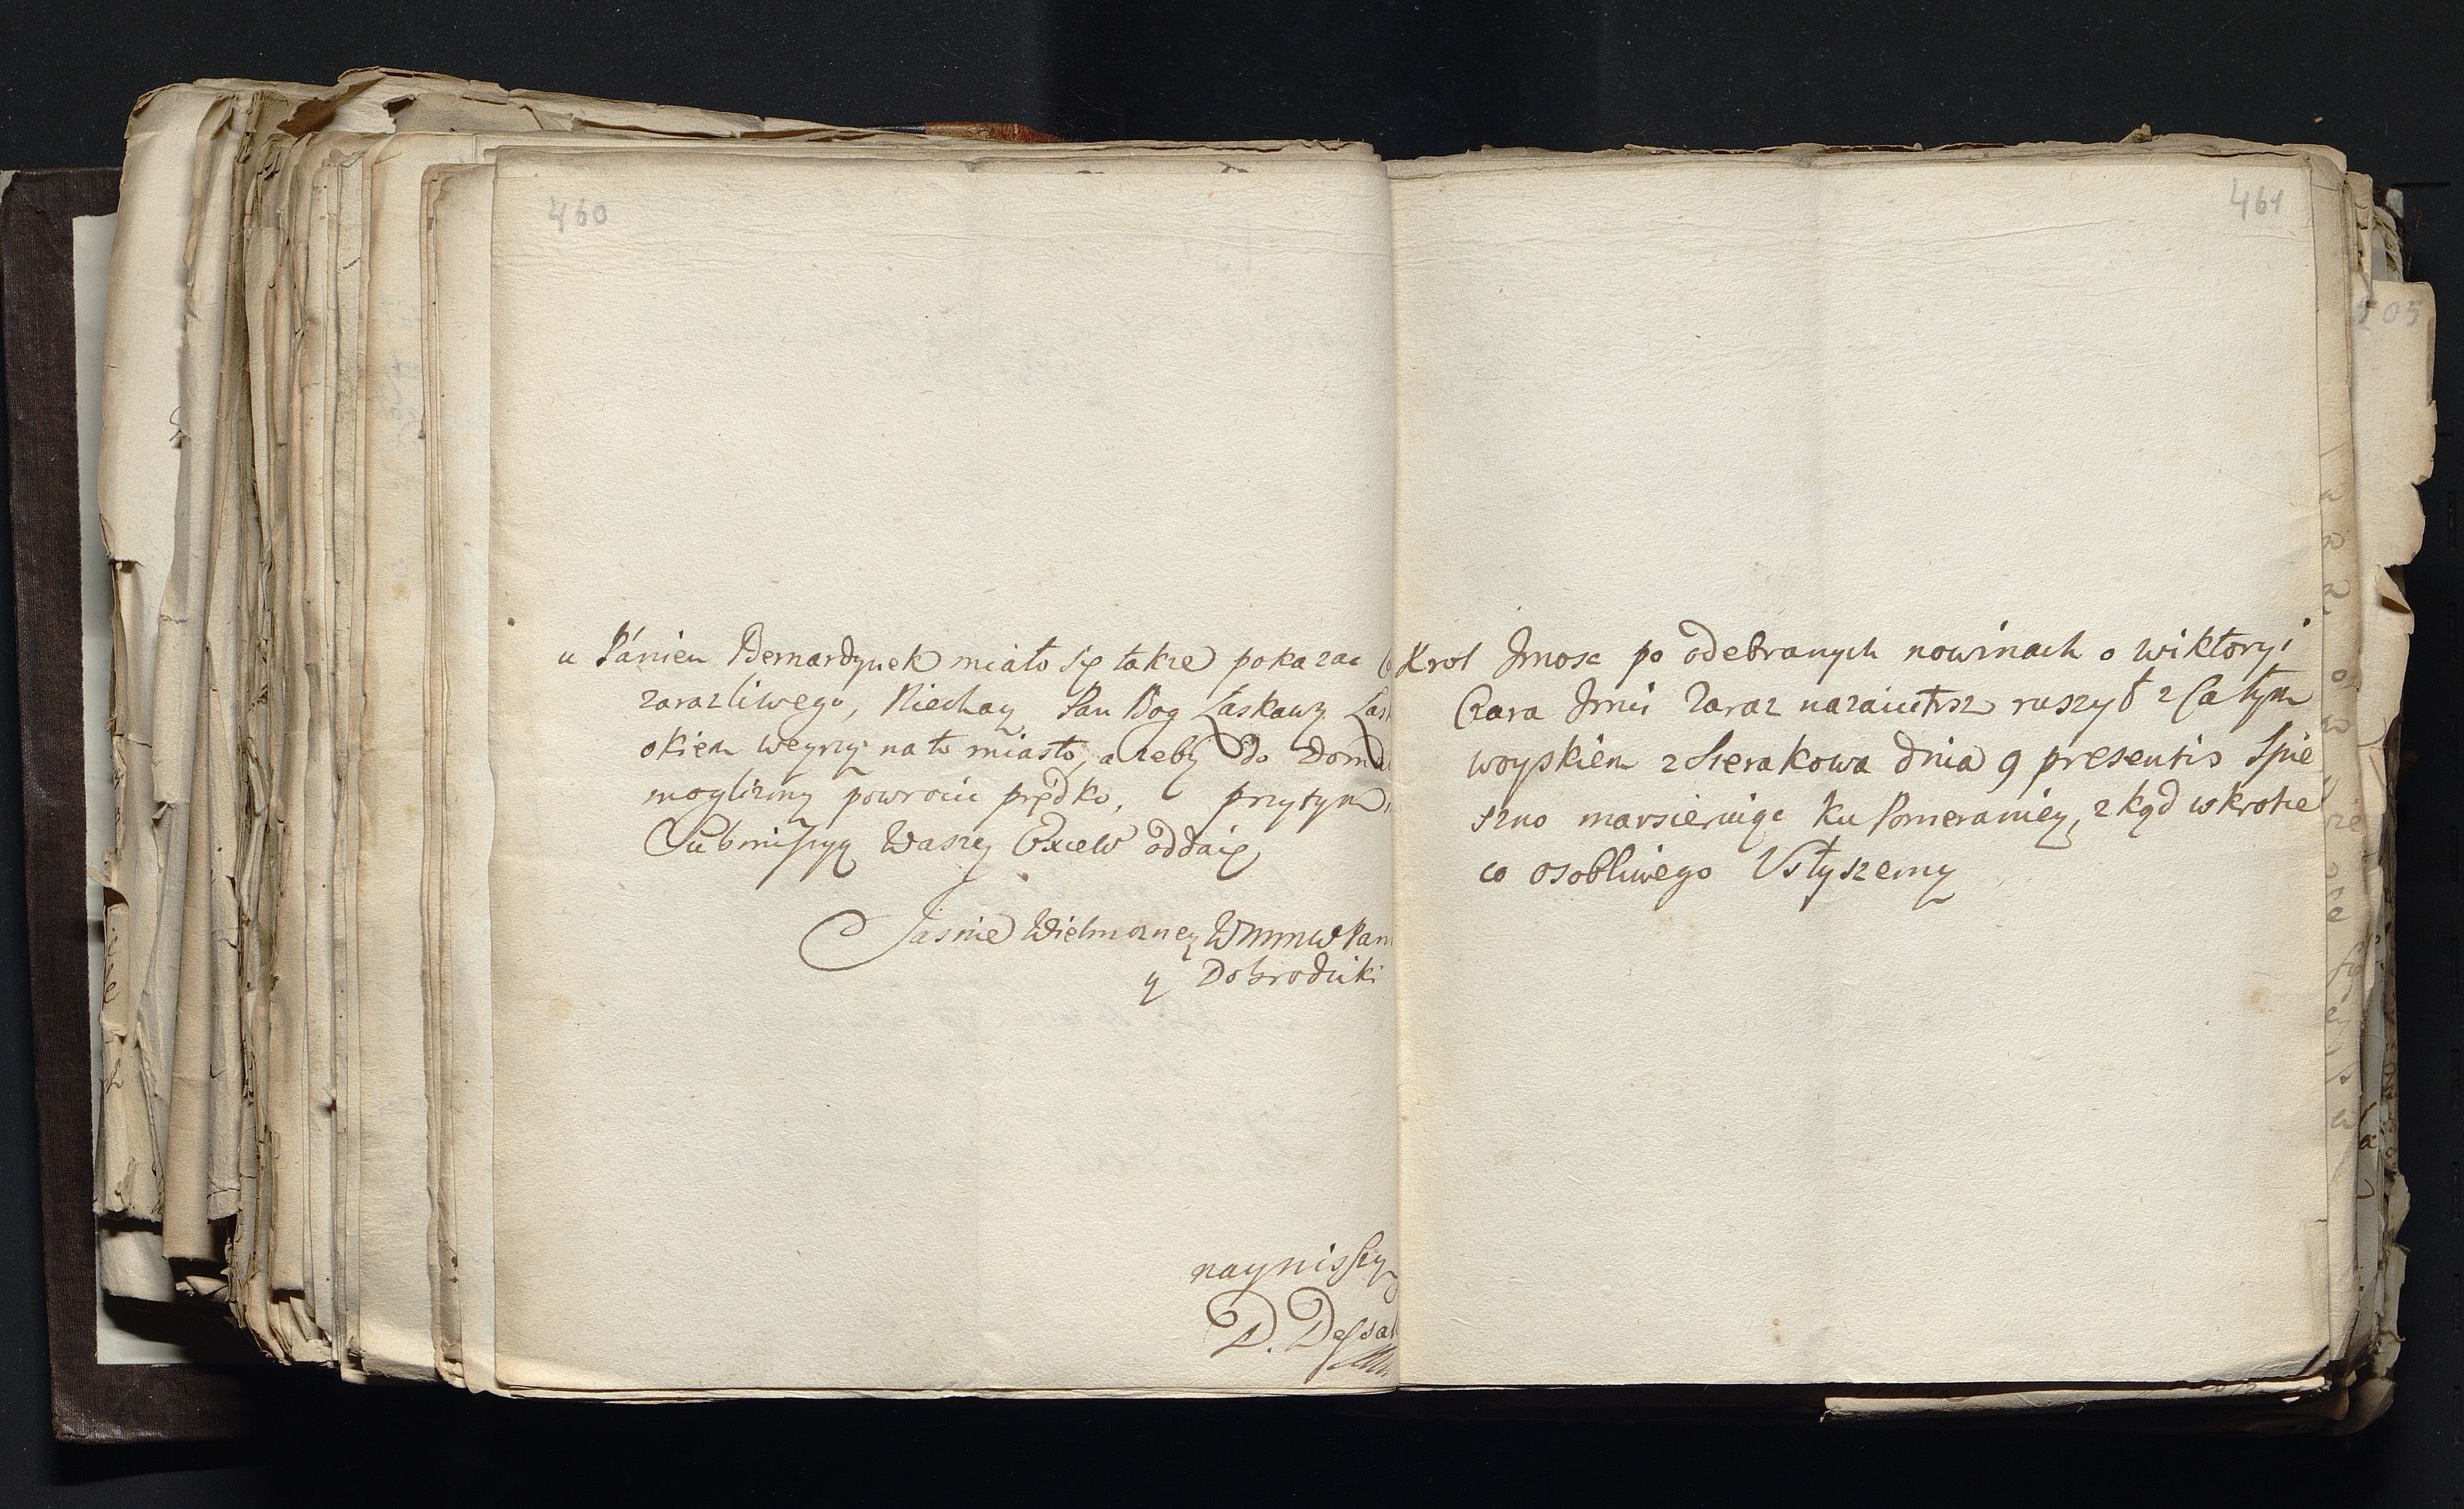 460
u Panien Bernardynek miało się takze pokazac
zarazliwego, Niechay Pan Bog Łaskawy
okiem weyrzy na to miasto, azeby do
moglismy powrocic prędko, przytym
Submissyą Waszey Excew oddaię
Jasnie Wielmozney WmmwPan
y Dobrodziki
naynisszy
D.
461
Krol Jmosc po odebranych nowinach o wiktoryi
Czara Jmci Zaraz nazaiutrsz ruszył z Całym
woyskiem z Sierakowa dnia 9 presentis Spie
szno marsieruige ku Pomeraniey, z kąd wkrotce
co osobliwego Usłyszemy
505